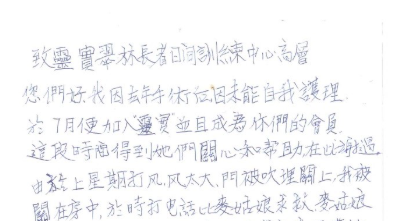 致靈實翠林長者日間訓練中心高層
您們好我因去年手術位因未能自我護理.
於7月便加入"靈實"並且成為你們的會員
這段時間得到她們關心和幫助在此謝過
由於上星期打风,风太大,門被吹埋關上,我被
關在房中,於時打电話比麥姑娘求救.麥姑娘